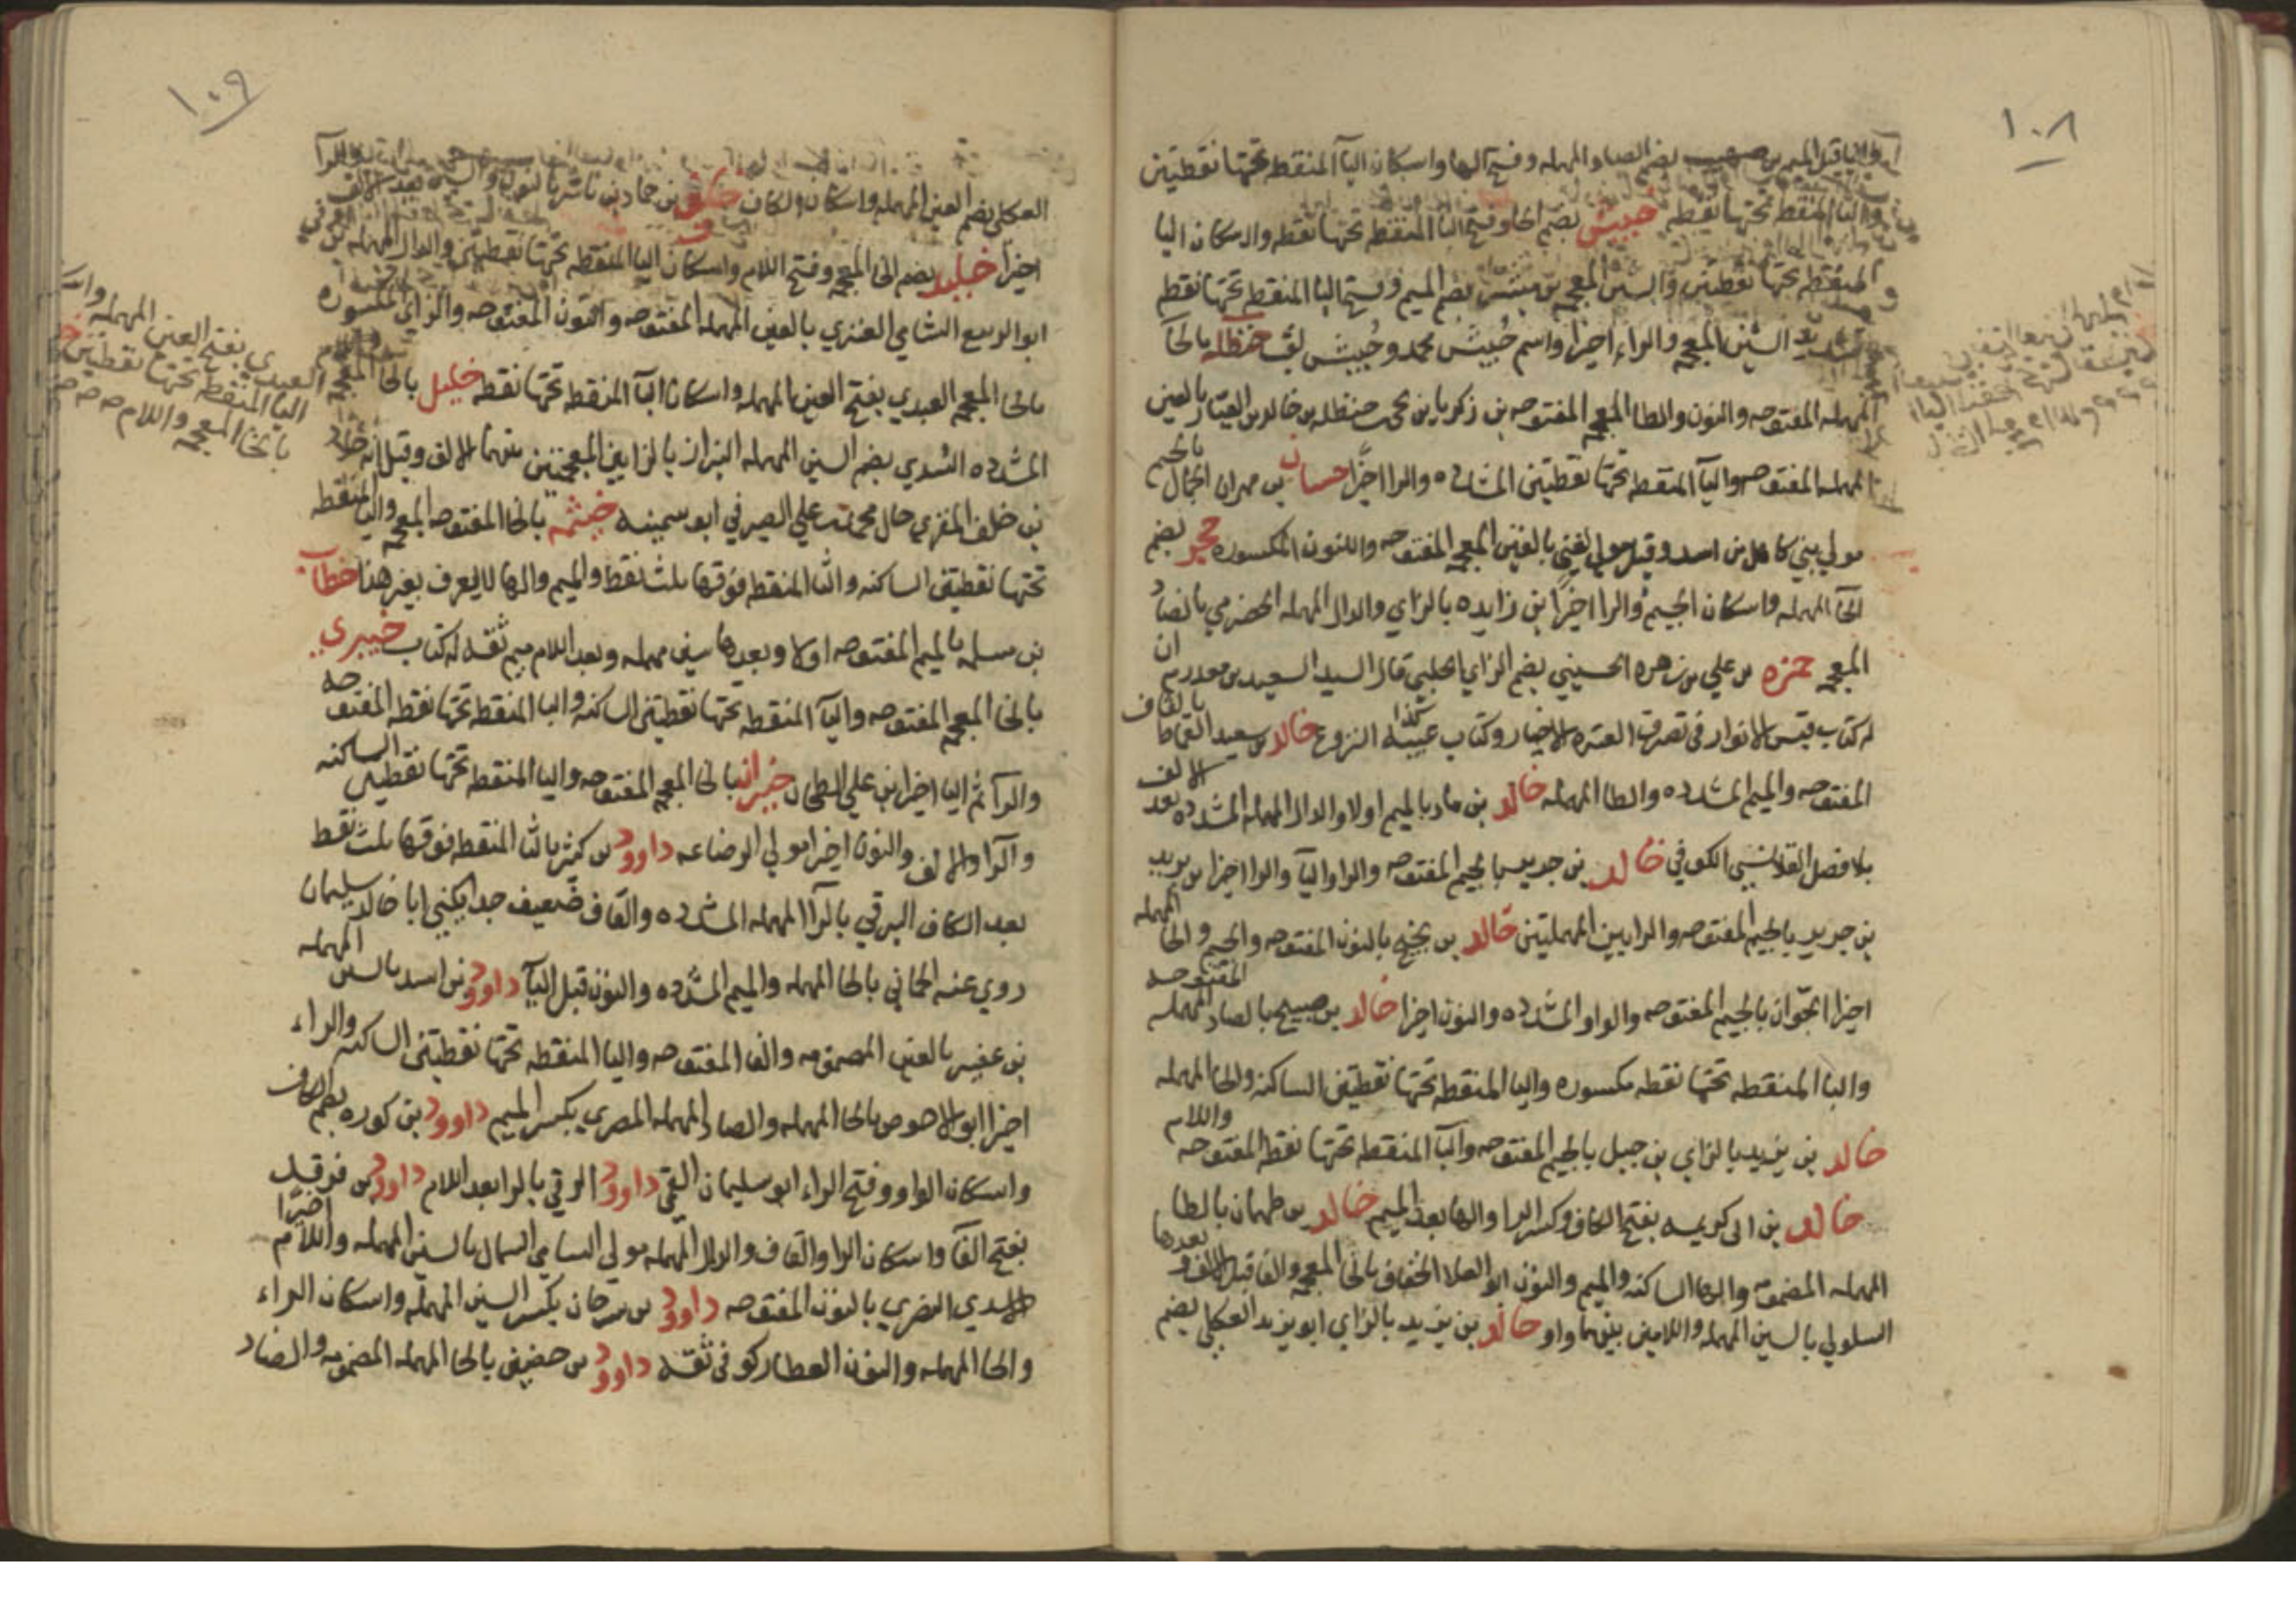 ١٠٨
قبل الميم بن صهيب بضم الصاد المهمله وفتح الها واسكان اليآ المنقطه تحتها نقطتين
والبا المنقطه تحتها نقطه حبيش بضم الحا وفتح البا المنقطه تحتها نقطه والاسكان اليا
المنقطه تحتها نقطتين والشين المعجمه بن مبشر بضم الميم وفتح البا المنقطه تحتها نقطه
وتشديد الشين المعجمه والراء اخيرا واسم حُبيش محمد وحُبيش لقب حنظله بالحآ
المهمله المفتوحه والنون والظا المعجمه المفتوحه بن زكريا بن يحيى بن حنظله بن خالد بن العيّار بالعين
المهمله المفتوحه واليآ المنقطه تحتها نقطتين المشدده والرا اخيرًا حسان بن مهران الجمال بالجيم
مولي بني كاهل من اسد وقيل مولي لغني بالغين المعجمه المفتوحه والنون المكسوره حجر بضم
الحآ المهمله واسكان الجيم والرا اخيرًا بن زايده بالزاي والدال المهمله الحضرمي بالضاد
المعجمه حمزه بن علي بن زهره الحسيني بضم الزاي الحلبي قال السيد السعيد بن معد رم ان
له كتاب قبس الانوار في نصرة العترة الاخيار وكتاب غنيه كذا النزوع خالد بن سعيد القماط بالقاف
المفتوحه والميم المشدده والطا المهمله خالد بن ماد بالميم اولا والدال المهمله المشدده بعد الالف
بلا فصل القلانسي الكوفي خالد بن جرير بالجيم المفتوحه والرا واليآ والرا اخيرا بن يزيد
بن جرير بالجيم المفتوحه والرايين المهملتين خالد بن نجيح بالنون المفتوحه والجيم والحا المهمله
اخيرا الجوّان بالجيم المفتوحه والواو المشدده والنون اخيرا خالد بن صبيح بالصاد المهمله المفتوحه
والبا المنقطه تحتها نقطه مكسوره واليا المنقطه تحتها نقطتين الساكنه والحا المهمله
خالد بن يزيد بالزاي بن جبل بالجيم المفتوحه والبآ المنقطه تحتها نقطه المفتوحه واللام
خالد بن ابي كريمه بفتح الكاف وكسر الرا والها بعد الميم خالد بن طهمان بالطا
المهمله المضمومه والها الساكنه والميم والنون ابو العلا الخفاف بالخا المعجمه والفا قبل الالف وبعدها
السلولي بالسين المهمله واللامين بينهما واو خالد بن يزيد بالزاي ابو يزيد العكلي بضم
١٠٩
العكلي بضم العين المهمله واسكان الكاف خلف بن حماد بن ناشر بالنون والشين بعد الالف
اخيرا خليد بضم الخا المعجمه وفتح اللام واسكان اليا المنقطه تحتها نقطتين والدال المهمله بن اوفي
ابو الربيع الشامي العنزي بالعين المهمله المفتوحه والنون المفتوحه والزاي المكسوره
بالخا المعجمه العبدي بفتح العين المهمله واسكان البآ المنقطه تحتها نقطه خليل بالخا المعجمه
المشدده السُدي بضم السين المهمله البزاز بالزايين المعجمتين بينهما الالف وقيل انه خالد
بن خلف المقري خال محمد بن علي الصيرفي ابو سمينه خيثمه بالخا المفتوحه المعجمه واليا المنقطه
تحتها نقطتين الساكنه والثا المنقطه فوقها ثلث نقط والميم والها لا يعرف بغير هذا خطاب
بن مسلمه بالميم المفتوحه اولا وبعدها سين مهمله وبعد اللام ميم ثقه له كتاب خيبري
بالخا المعجمه المفتوحه واليآ المنقطه تحتها نقطتين الساكنه والبا المنقطه تحتها نقطه المفتوحه
والرآ ثم اليا اخيرا بن علي الطحان خيران بالخا المعجمه المفتوحه واليا المنقطه تحتها نقطتين الساكنه
والرآ والالف والنون اخيرا مولي الرضا عه داوود بن كثير بالثا المنقطه فوقها ثلث نقط
بعد الكاف البرقي بالرآ المهمله المشدده والقاف ضعيف جدا يكني ابا خالد سليمان
روي عنه الحماني بالحا المهمله والميم المشدده والنون قبل اليآ داوود بن اسد بالسين المهمله
بن عفير بالعين المضمومه والفا المفتوحه واليا المنقطه تحتها نقطتين الساكنه والراء
اخيرا ابو الاحوص بالحا المهمله والصاد المهمله المصري بكسر الميم داوود بن كوره بضم الكاف
واسكان الواو وفتح الراء ابو سليمان القمي داوود الرقي بالرا بعد اللام داوود بن فرقد
بفتح الفآ واسكان الرا والقاف والدال المهمله مولي ال ابي السمال بالسين المهمله واللام اخيرًا
الاسدي النصري بالنون المفتوحه داوود بن سرحان بكسر السين المهمله واسكان الراء
والحا المهمله والنون العطار كوفي ثقه داوود بن حصين بالحا المهمله المضمومه والصاد
العبدي بفتح العين المهمله
اليا المنقطه تحتها نقطتين
بالخا المعجمه واللام